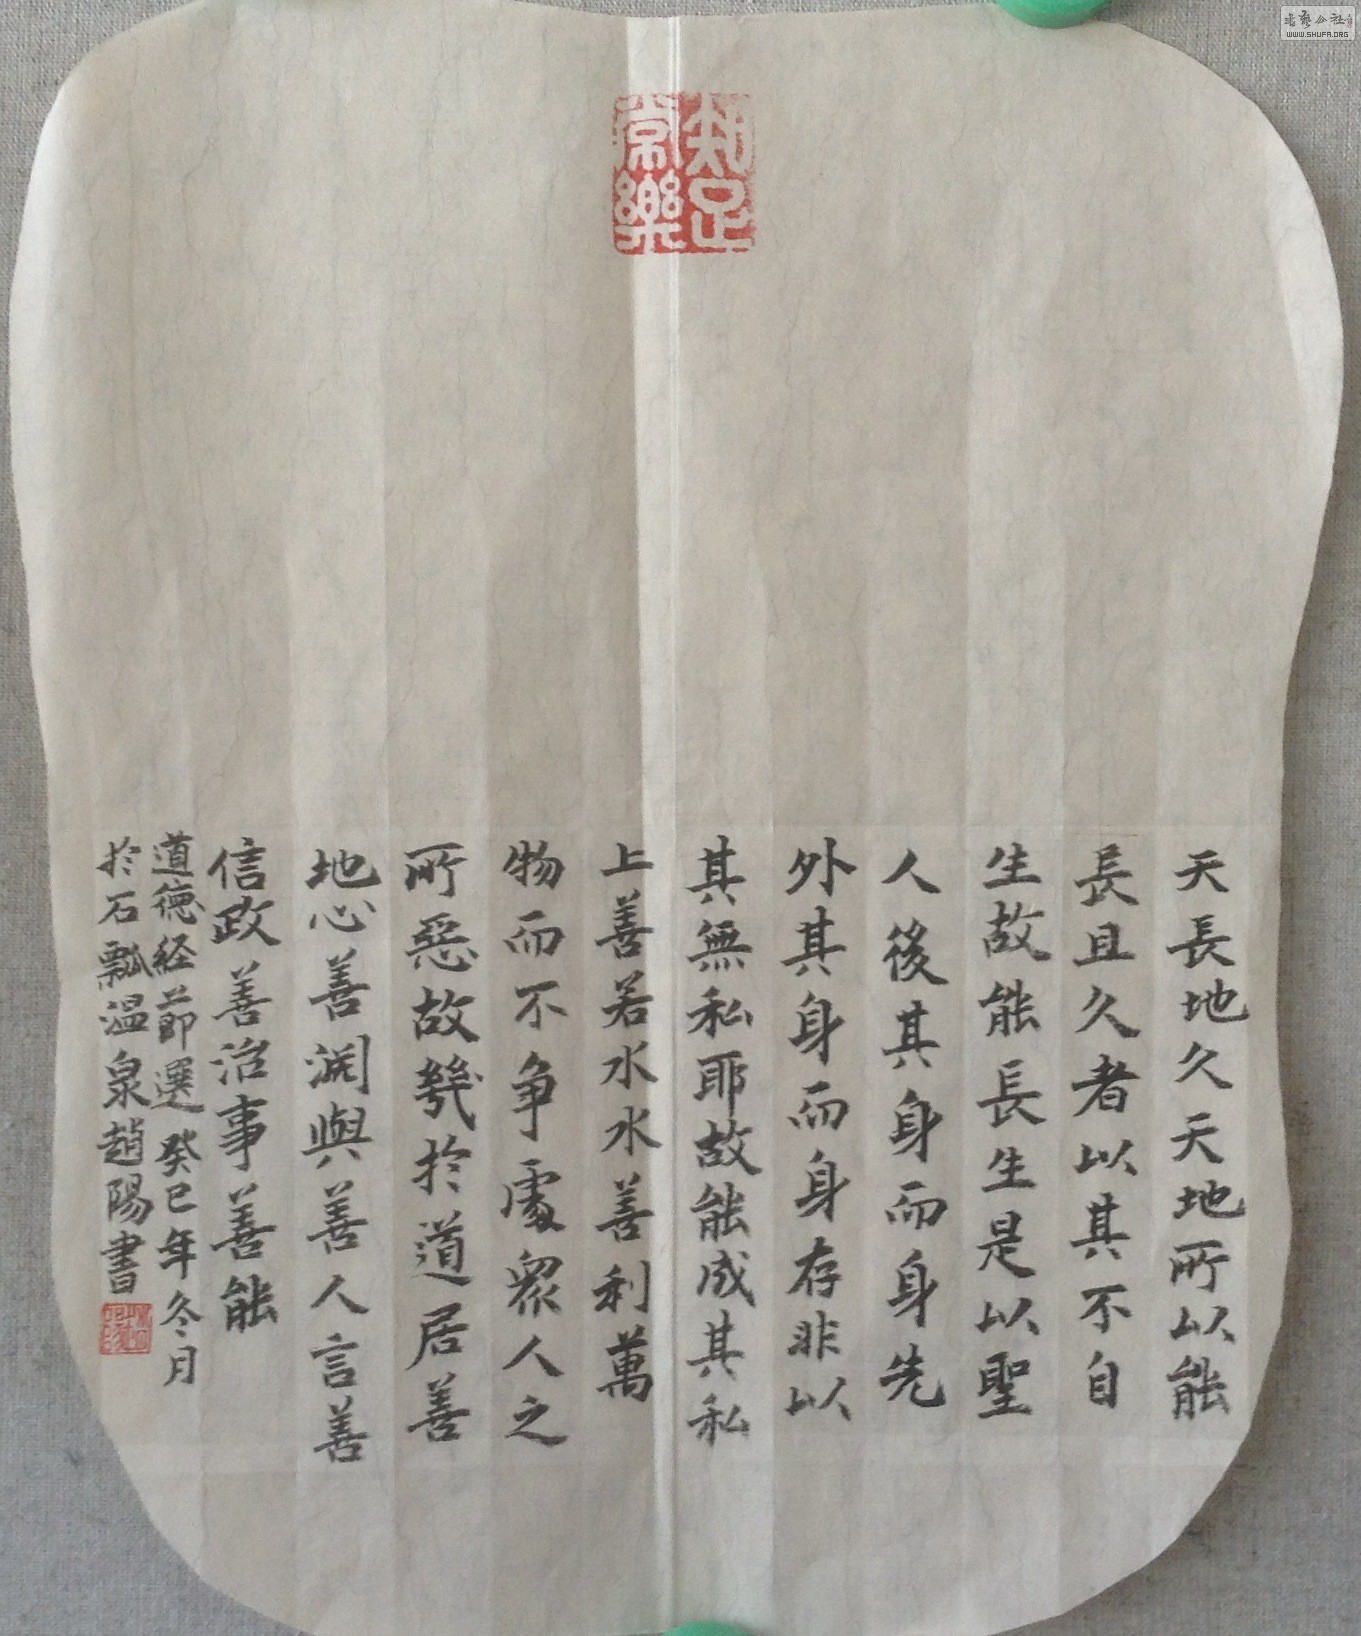 知足
常樂
天長地久天地所以能
長且久者以其不自
生故能長生是以聖
人後其身而身先
外其身而身存非以
其無私耶故能成其私
上善若水水善利萬
物而不争處衆人之
所惡故幾於道居善
地心善淵與善人言善
信政善治事善能
道德经節選 癸巳年冬月
於石瓢温泉趙陽書
书艺公社
WWW.SHUFA.ORG